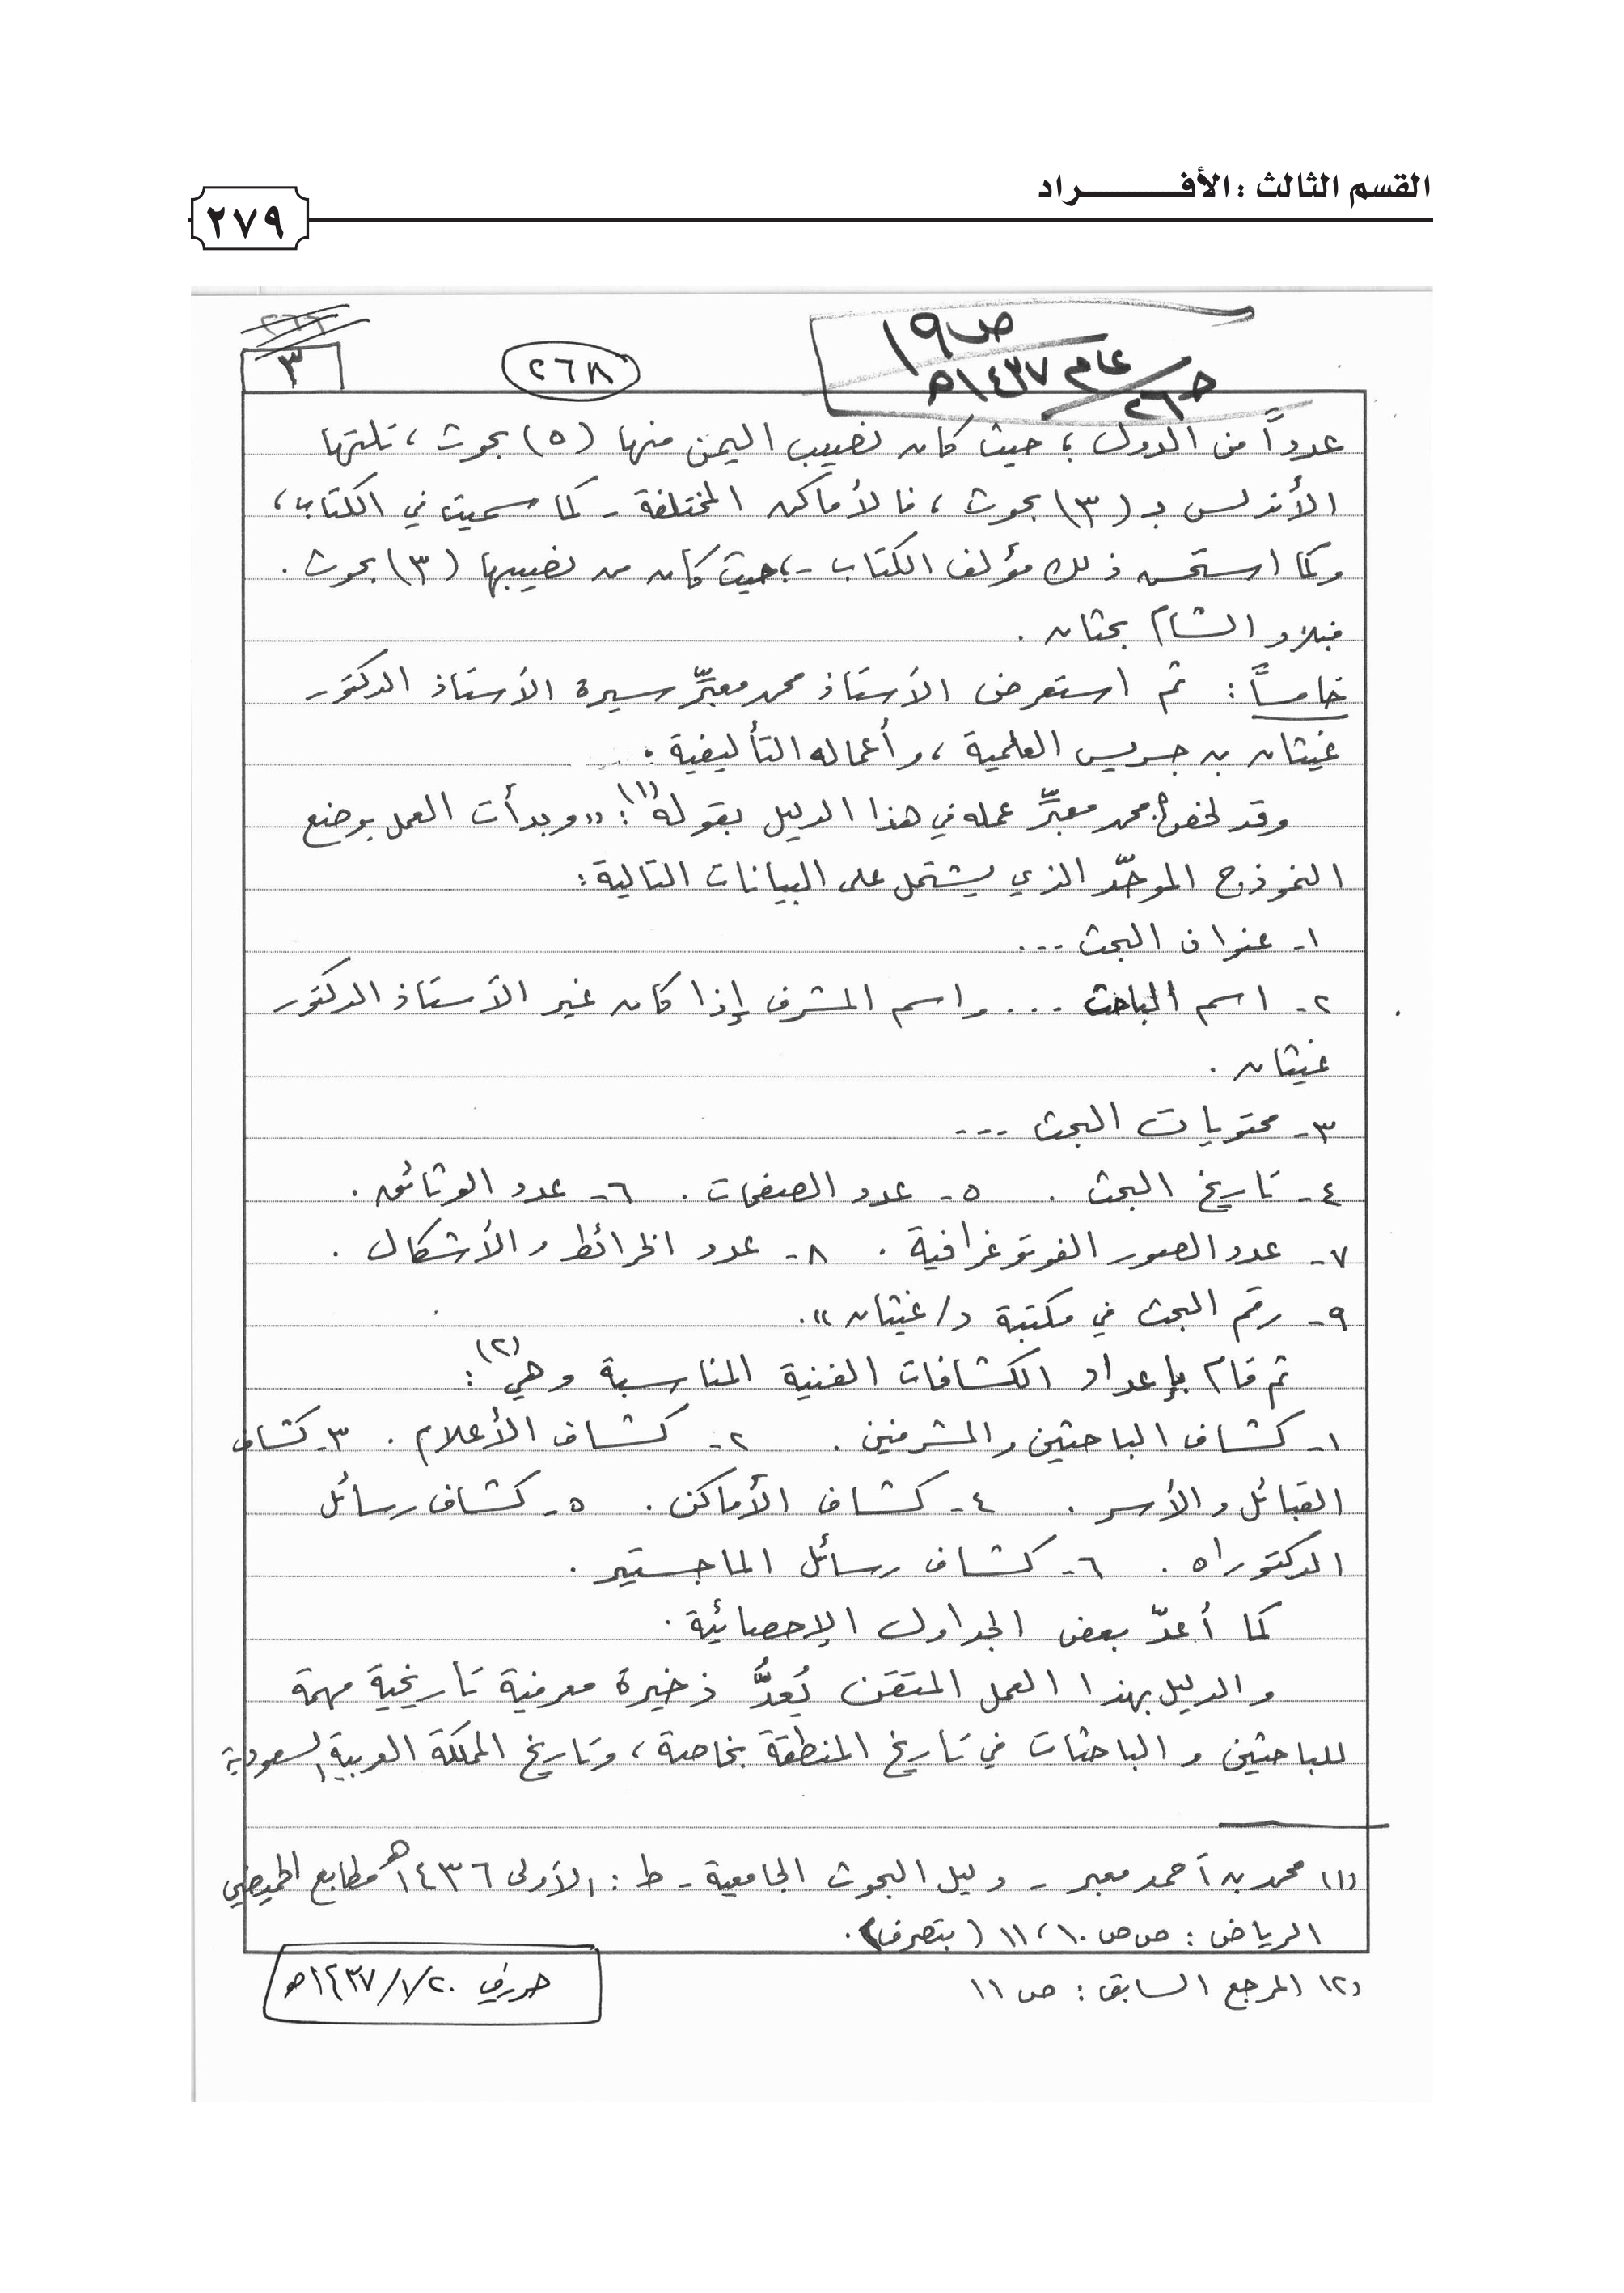 القسم الثالث : الأفـــــــراد
٢٧٩
ص ١٩
عام ١٤٣٧هـ
٢٦٨
٣
عدداً من الدول ؛ حيث كان نصيب اليمن منها (٥) بحوث ، تلتها
الأندلس بـ (٣) بحوث ، فالأماكن المختلفة - كما سميت في الكتاب ،
وكما استحسن ذلك مؤلف الكتاب - ؛ حيث كان من نصيبها (٣) بحوث .
فبلاد الشام بحثان .
خامساً : ثم استعرض الأستاذ محمد معبِّر سيرة الأستاذ الدكتور
غيثان بن جريس العلمية ، وأعماله التأليفية :
وقد لخص أ. محمد معبِّر عمله في هذا الدليل بقوله (١) : «وبدأت العمل بوضع
النموذج الموحّد الذي يشتمل على البيانات التالية :
١- عنوان البحث ...
٢- اسم الباحث ... واسم المشرف إذا كان غير الأستاذ الدكتور
غيثان .
٣- محتويات البحث ...
٤- تاريخ البحث . ٥- عدد الصفحات . ٦- عدد الوثائق .
٧- عدد الصور الفوتوغرافية . ٨- عدد الخرائط والأشكال .
٩- رقم البحث في مكتبة د/غيثان» .
ثم قام بإعداد الكشافات الفنية المناسبة وهي (٢) :
١- كشاف الباحثين والمشرفين . ٢- كشاف الأعلام . ٣- كشاف
القبائل والأسر . ٤- كشاف الأماكن . ٥- كشاف رسائل
الدكتوراه . ٦- كشاف رسائل الماجستير .
كما أعدّ بعض الجداول الإحصائية .
والدليل بهذا العمل المتقن يُعدُّ ذخيرة معرفية تاريخية مهمة
للباحثين والباحثات في تاريخ المنطقة بخاصة ، وتاريخ المملكة العربية السعودية
(١) محمد بن أحمد معبر - دليل البحوث الجامعية - ط : الأولى ١٤٣٦هـ مطابع الحميضي
الرياض : ص ص ١٠ ، ١١ (بتصرف) .
(٢) المرجع السابق : ص ١١
حرر في ١٤٣٧/١/٢٠هـ